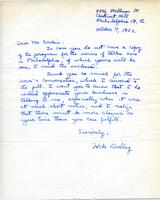 8836 Millman St
Chestnut Hill
Philadelphia 18, Pa.
October 7, 1952
Dear Mr.
In case you do not have a copy
of the program for the series of talks here
in Philadelphia, of which yours will be
one, I send the enclosed.
Thank you so much for the
hour's conversation, which I enjoyed to
the full. I want you to know that I do
indeed appreciate your kindness in
talking to me, especially when it was
at such short notice, and I realize
that there must be more claims on
your time than you can fulfill.
Sincerely,